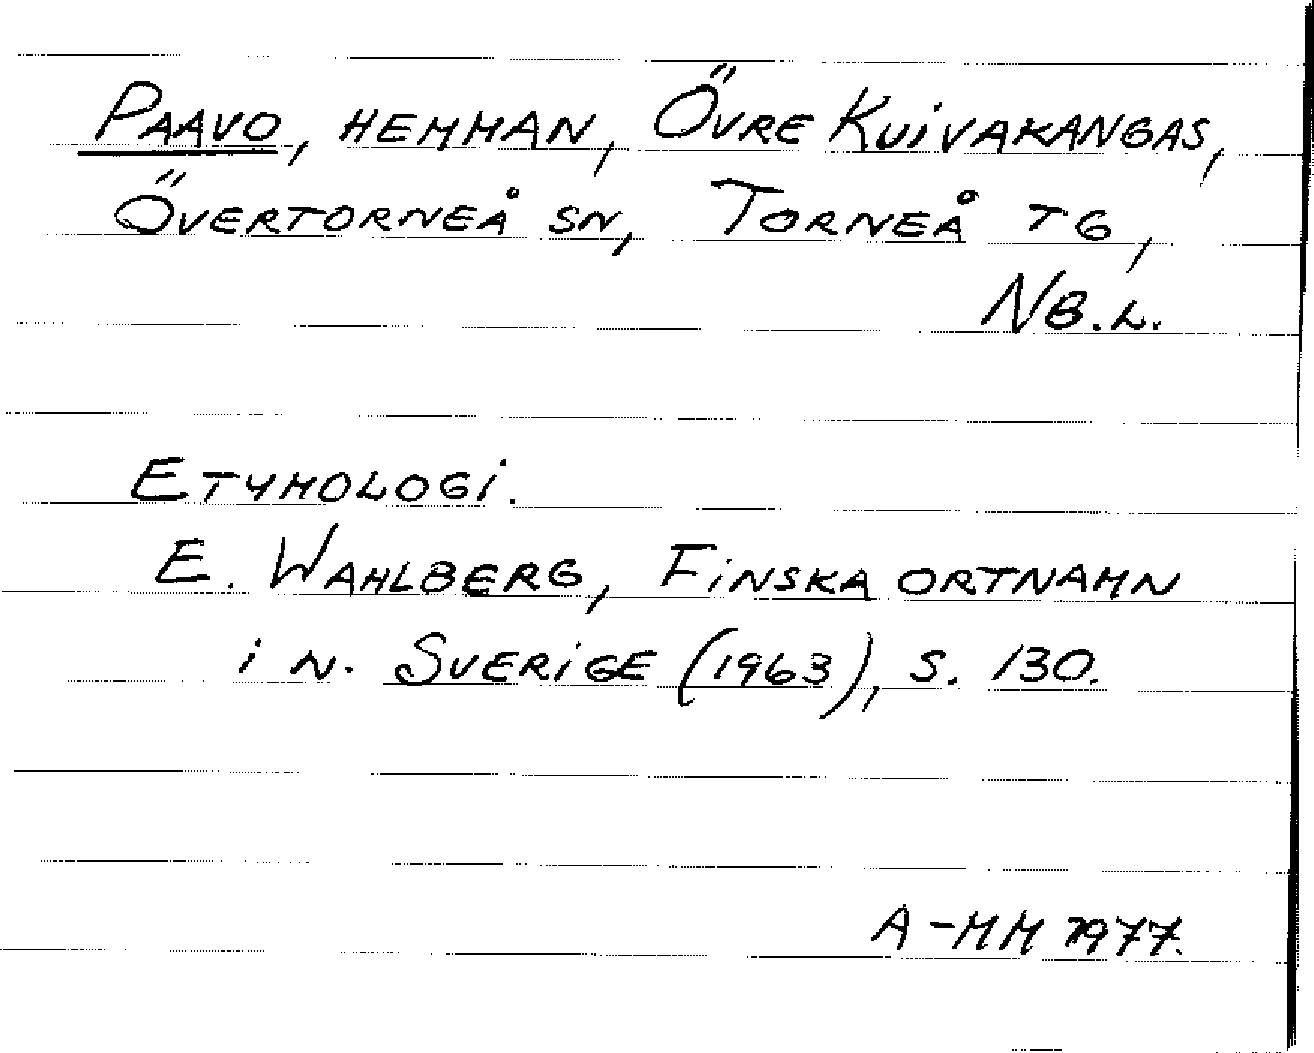 PAAVO, HEMMAN, ÖVRE KUIVAKANGAS,
ÖVERTORNEÅ SN, TORNEÅ TG,
NB.L.
ETYMOLOGI.
E. WAHLBERG, FINSKA ORTNAMN
I N. SVERIGE (1963), S. 130.
A-MM 1977.